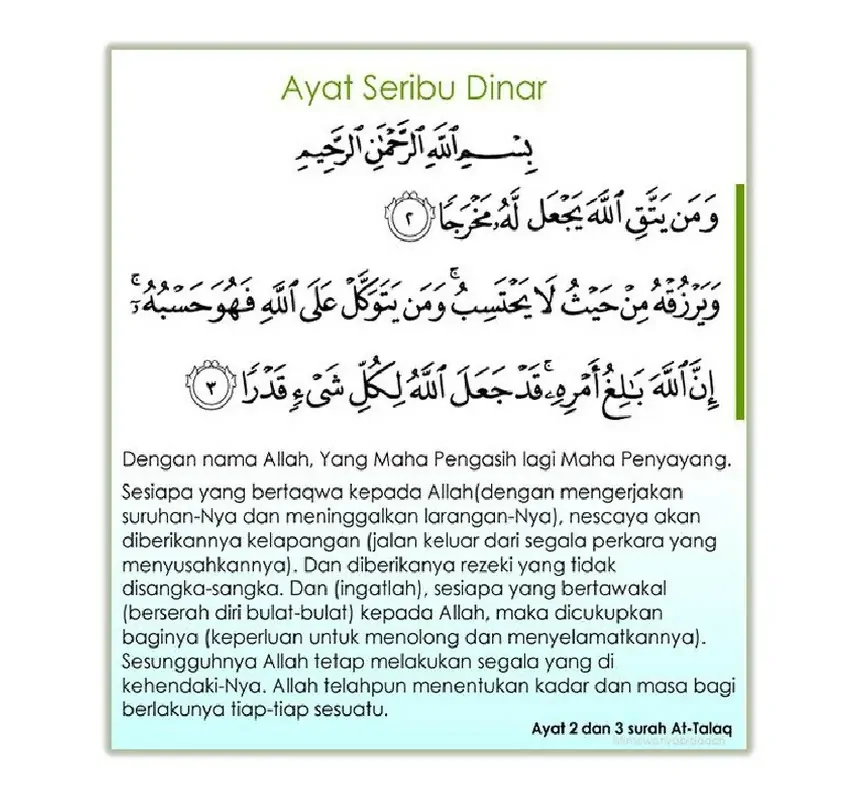 Ayat Seribu Dinar
بِسْمِ اللَّهِ الرَّحْمَٰنِ الرَّحِيمِ
وَمَن يَتَّقِ اللَّهَ يَجْعَل لَّهُۥ مَخْرَجًا ٢
وَيَرْزُقْهُ مِنْ حَيْثُ لَا يَحْتَسِبُ ۚ وَمَن يَتَوَكَّلْ عَلَى اللَّهِ فَهُوَ حَسْبُهُۥٓ ۚ
إِنَّ اللَّهَ بَٰلِغُ أَمْرِهِۦ ۚ قَدْ جَعَلَ اللَّهُ لِكُلِّ شَىْءٍ قَدْرًا ٣
Dengan nama Allah, Yang Maha Pengasih lagi Maha Penyayang.
Sesiapa yang bertaqwa kepada Allah(dengan mengerjakan
suruhan-Nya dan meninggalkan larangan-Nya), nescaya akan
diberikannya kelapangan (jalan keluar dari segala perkara yang
menyusahkannya). Dan diberikanya rezeki yang tidak
disangka-sangka. Dan (ingatlah), sesiapa yang bertawakal
(berserah diri bulat-bulat) kepada Allah, maka dicukupkan
baginya (keperluan untuk menolong dan menyelamatkannya).
Sesungguhnya Allah tetap melakukan segala yang di
kehendaki-Nya. Allah telahpun menentukan kadar dan masa bagi
berlakunya tiap-tiap sesuatu.
Ayat 2 dan 3 surah At-Talaq